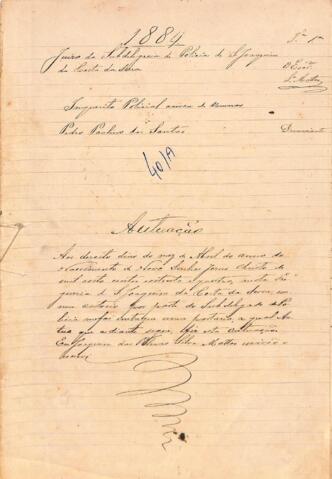 1884
Fs. 1
Juizo da Subdelegacia de Policia de S. Joaquim
da Costa da Serra
O Esc.
S. Mattos
Inquerito Policial acerca de
Pedro Paulino dos Santos Denunciante
40/A
Autuação
Aos dezoito dias do mez de Abril do anno do
Nascimento de Nosso Senhor Jesus Christo de
mil oito centos oitenta e quatro, nesta Fre
guesia de S. Joaquim da Costa da Serra, em
meu cartorio por parte do Subdelegado de Po
licia me foi entregue uma portaria, a qual au
tuo que adiante segue, e fiz esta autuação.
Eu Joaquim da Silva Mattos escrivão o
escrevi